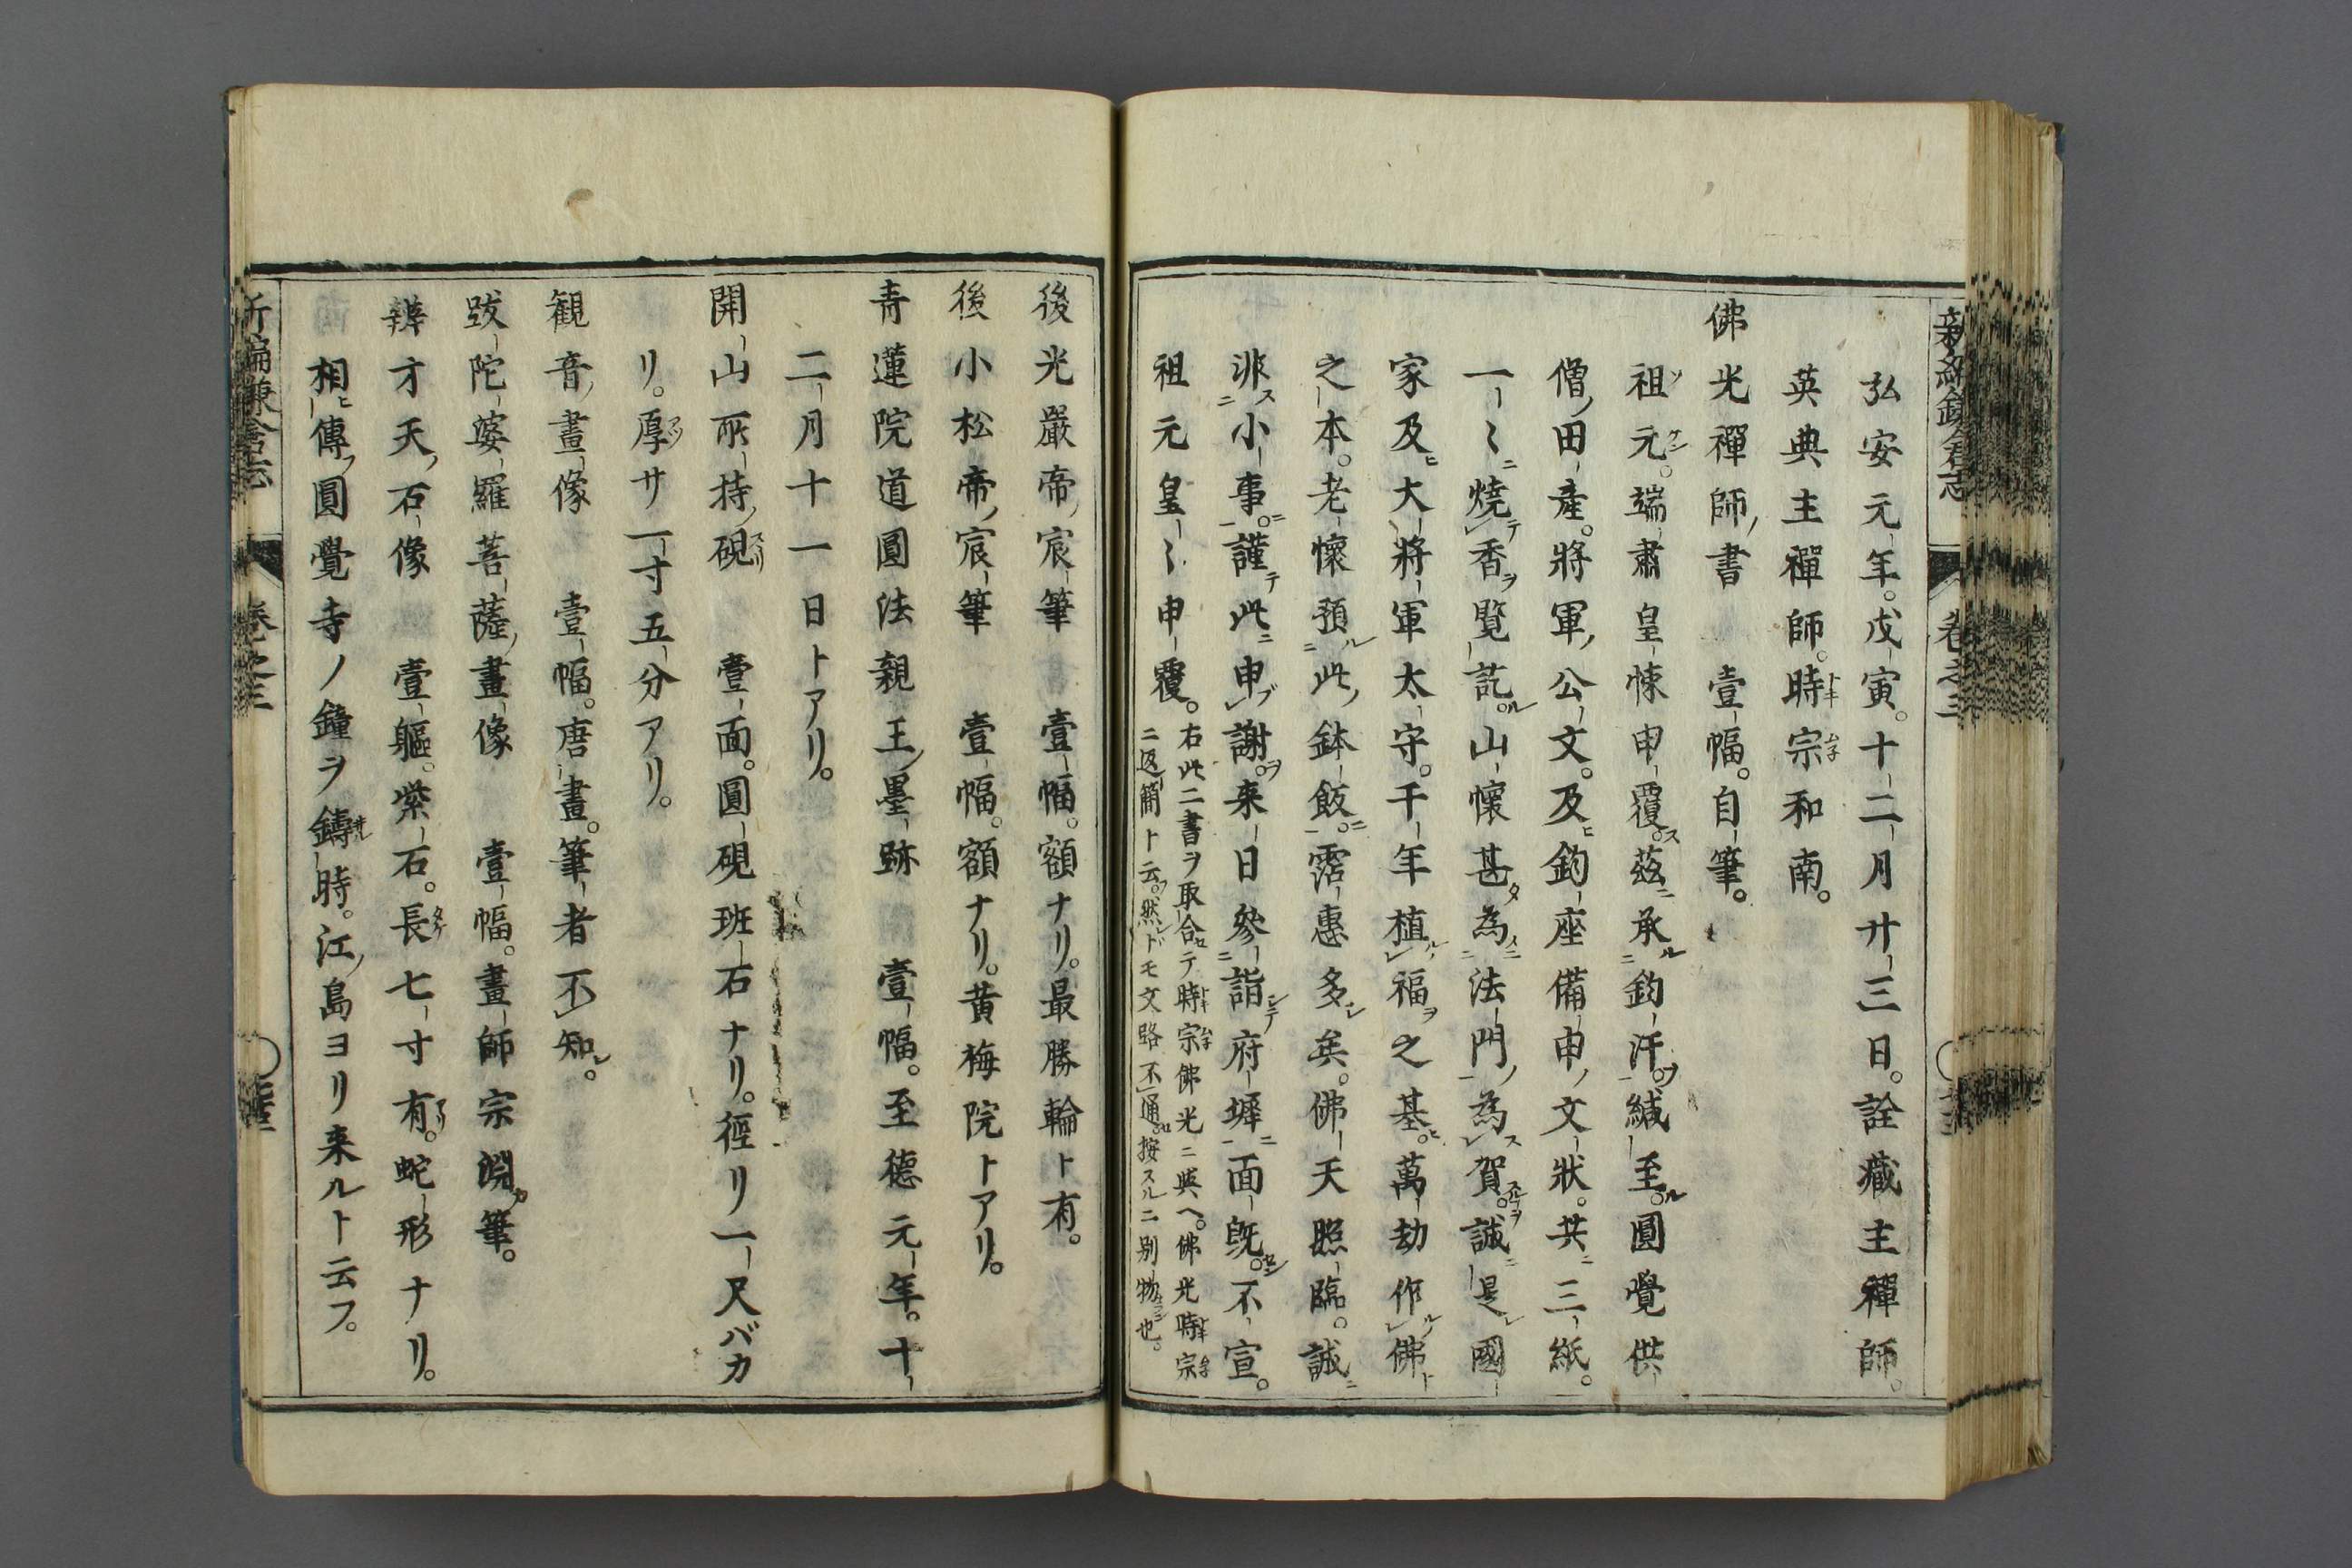 弘安元年。戊寅。十二月廿三日。詮藏主禪師。
英典主禪師。時宗和南。
佛光禪師ノ書　壹幅。自筆。
祖元。端肅皇悚申覆ス。茲ニ承ル鈞汗ヲ。緘至ル。圓覺供
僧ノ田産。將軍ノ公文。及ヒ鈞座備申ノ文狀。共ニ三紙。
一〻ニ燒テ香ヲ覽訖ル。山懷甚タ為ニ法門ノ為ス賀スルヿヲ。誠ニ是レ國
家及ヒ大將軍太守。千年植ルノ福ヲ之基ヒ。萬劫作ルノ佛ト
之本。老懷預ル此ノ鉢飯ニ。霑惠多シ矣。佛天照臨。誠ニ
非ス小事ニ。謹テ此ニ申ブ謝ヲ。来日參詣シテ府墀ニ面既セン。不宣。
祖元皇〻申覆。
右此二書ヲ取合セテ時宗佛光ニ與ヘ。佛光時宗
ニ返簡ト云フ。然レドモ文路不通セ。按スルニ別物ナラン也。
後光嚴帝ノ宸筆　壹幅。額ナリ。最勝輪ト有。
後小松帝ノ宸筆　壹幅。額ナリ。黄梅院トアリ。
青蓮院道圓法親王ノ墨跡　壹幅。至德元年。十
二月十一日トアリ。
開山所持ノ硯　壹面。圓硯班石ナリ。徑リ一尺バカ
リ。厚サ一寸五分アリ。
觀音ノ畫像　壹幅。唐畫。筆者不知レ。
跋陀婆羅菩薩ノ畫像　壹幅。畫師宗淵カ筆。
辨才天ノ石像　壹軀。紫石。長七寸有。蛇形ナリ。
相ヒ傳フ圓覺寺ノ鐘ヲ鑄時。江ノ島ヨリ来ルト云フ。
新編鎌倉志　卷之三